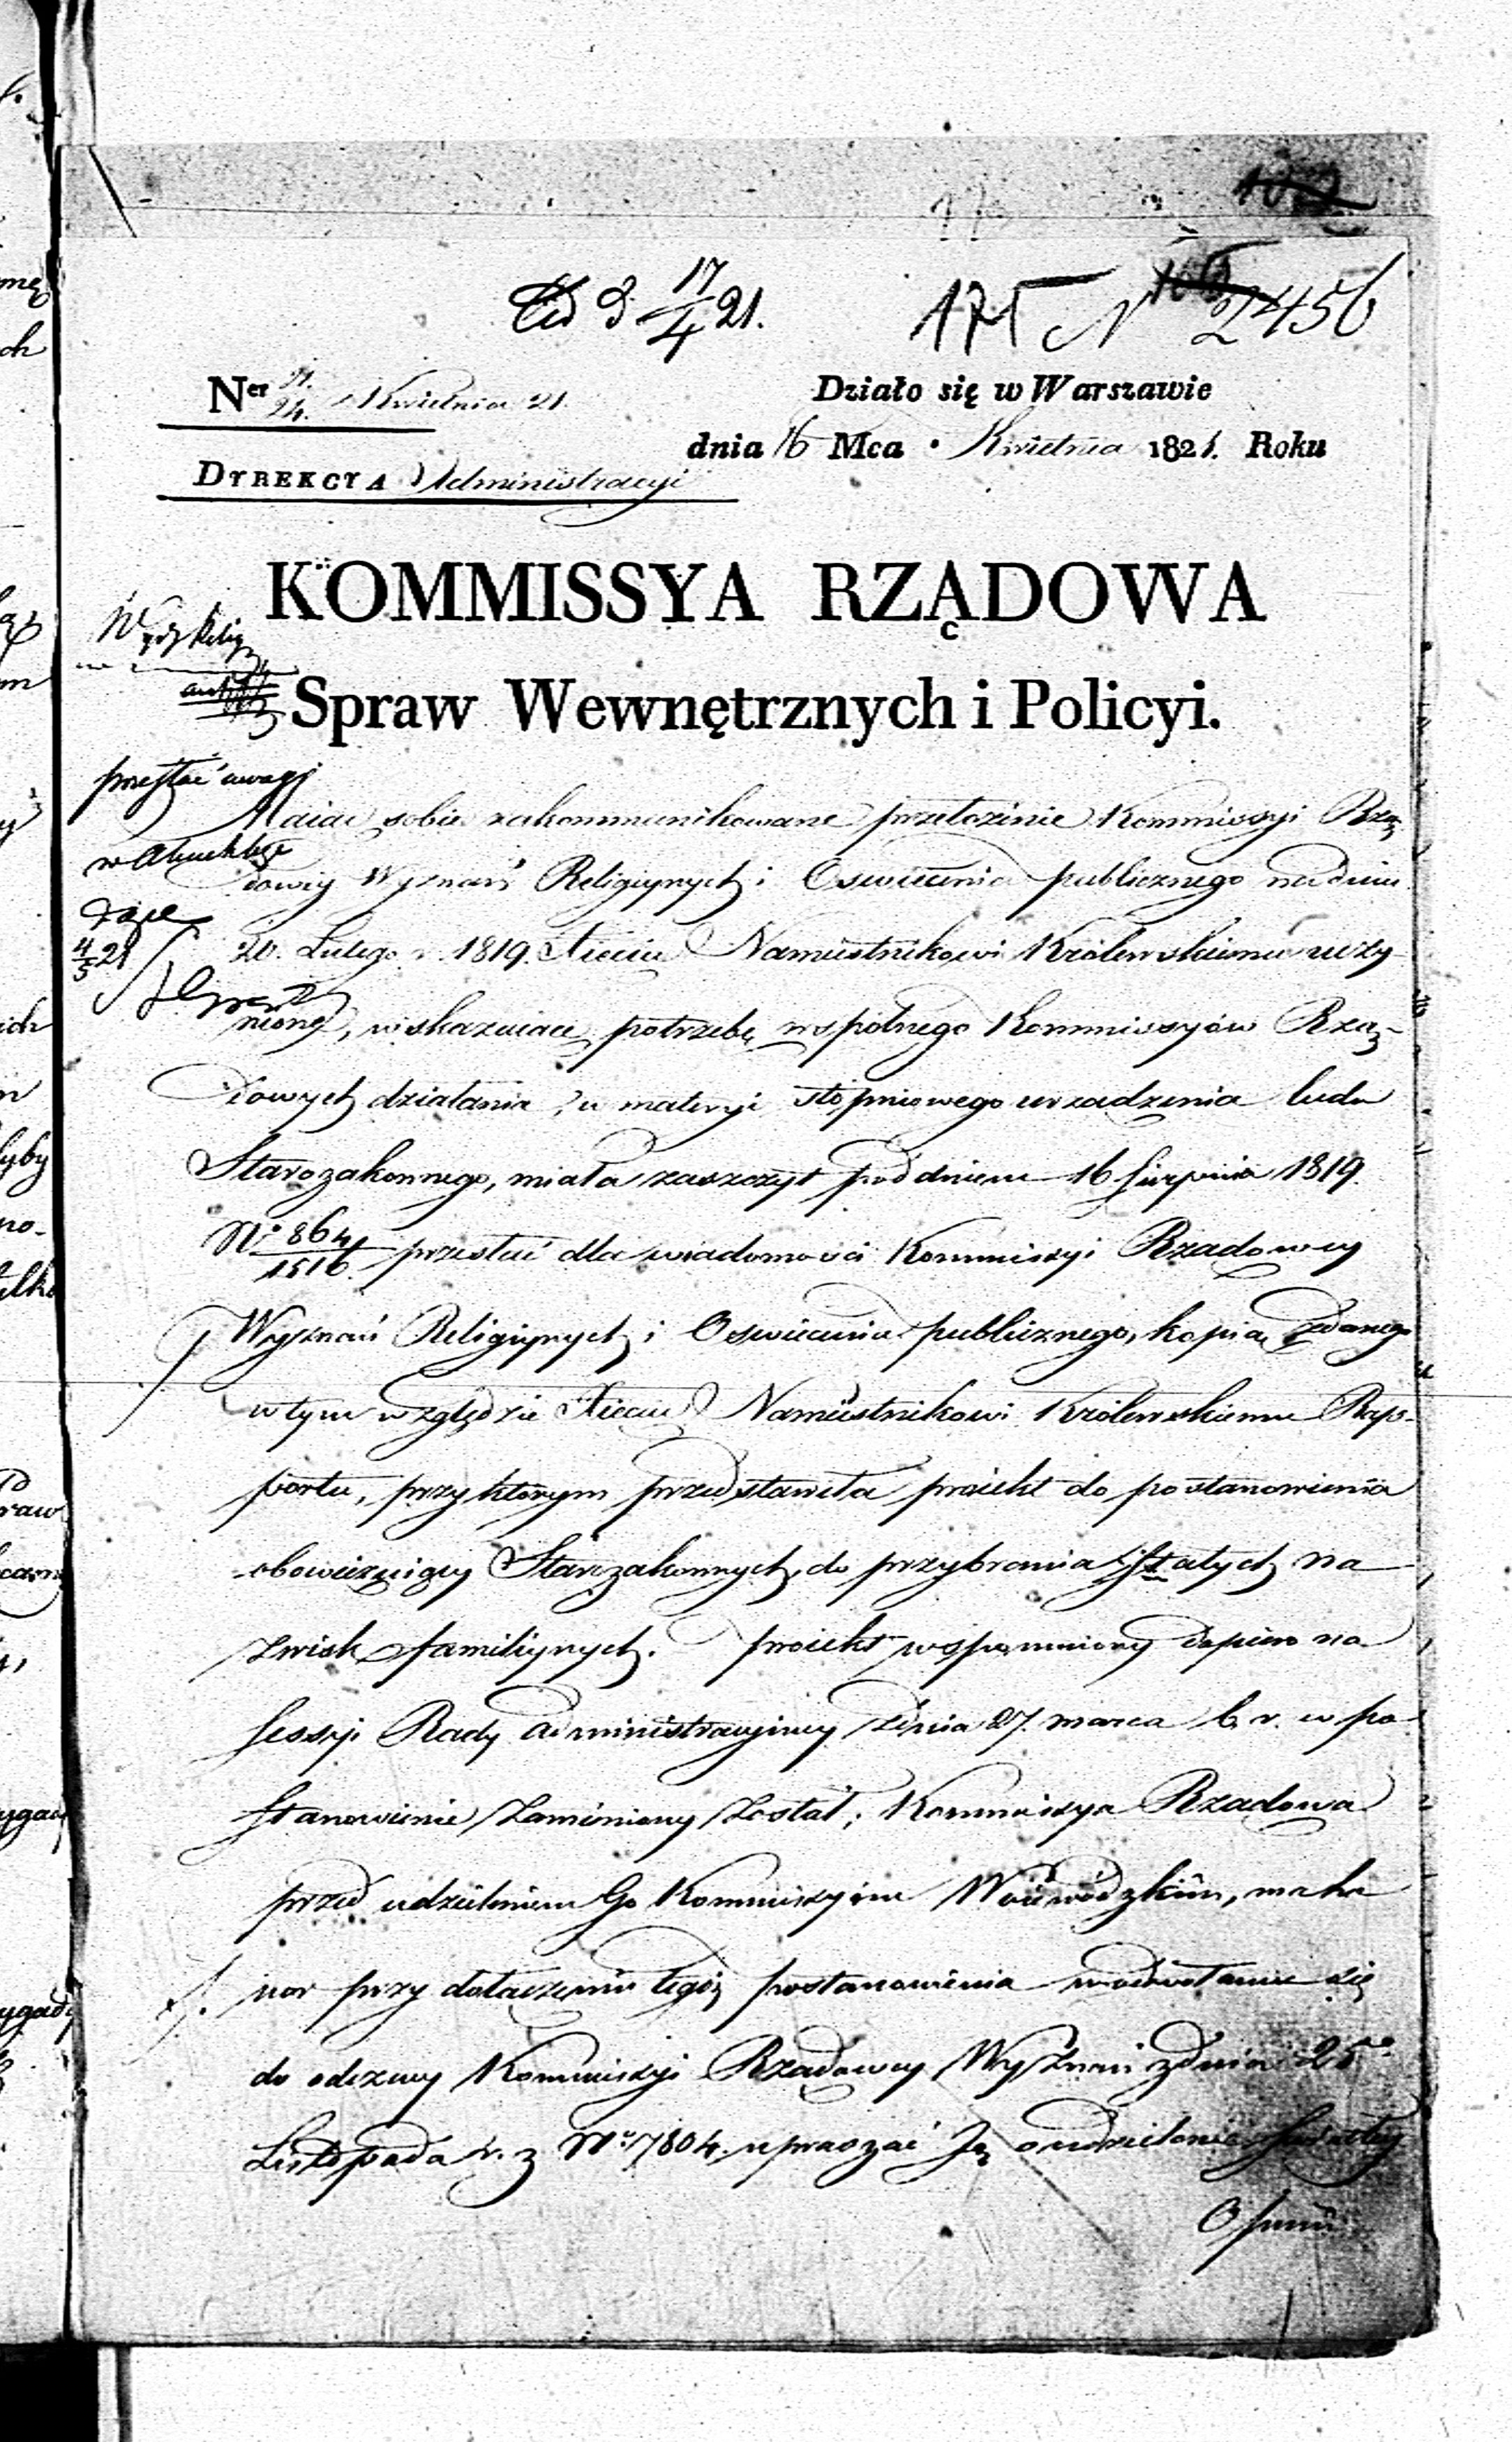 17
102
17/4 21.
171 N 2456
Ner 21. / 24. Kwietnia 21.
Działo się w Warszawie
dnia 16 Mca Kwietnia 1821. Roku
DYREKCYA Administracyi
KOMMISSYA RZĄDOWA
Spraw Wewnętrznych i Policyi.
przesłać uwagi
Maiąc sobie zakommunikowane przełożenie Kommissyi Rzą-
dowey Wyznań Religiynych i Oswiecenia publicznego na dniu
20. Lutego r. 1819. Xięciu Namiestnikowi Królewskiemu uczy
nione, wskazuiące potrzebę wspólnego Kommissyów Rzą-
dowych działania, w materyi stopniowego urządzenia ludu
Starozakonnego, miała zaszczyt pod dniem 16 Sierpnia 1819.
No 864/1516 przesłać dla wiadomości Kommissyi Rządowey
Wyznań Religiynych i Oswiecenia publicznego, kopią zdanego
w tym względzie Xięciu Namiestnikowi Królewskiemu Rap-
portu, przy którym przedstawiła proiekt do postanowienia
obowiązuiący Starozakonnych, do przybrania stałych na
zwisk familiynych. Proiekt wspomniony dopiero na
Sessyi Rady Administracyiney z dnia 27. marca b. r. w po-
stanowienie zamieniony został; Kommissya Rządowa
przed udzieleniem Go Kommissyiom Woiewódzkim, ma ho
nor przy dołączeniu tegoż postanowienia w odwołaniu się
do odezwy Kommissyi Rządowey Wyznań z dnia 25o
Listopada r. z. No 7804. upraszać Ją o udzielenie światłey
Opinii